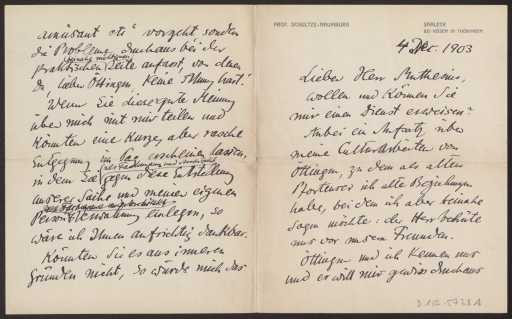 PROF. SCHULTZE-NAUMBURG
SAALECK
BEI KÖSEN IN THÜRINGEN
4 Dec. 1903
Lieber Herr Muthesius,
wollen und können Sie
mir einen Dienst erweisen?
Anbei ein Aufsatz über
meine Culturarbeiten von
Öttingen, zu dem als alten
ich alte Beziehungen
habe, bei dem ich aber beinahe
sagen möchte: der Herr behüte
mir vor meinen Freunden.
Öttingen und ich kennen uns
und er will mir gewiss durchaus
amüsant etc vorgeht sondern
die Probleme durchaus bei der
praktischen Seite anfasst, von denen
Du, lieber Öttingen, keine Ahnung hast!
Wenn Sie diese gute Meinung
über mich mit mir teilen und
könnten eine kurze, aber rasche
Entgegnung im Tag erscheinen lassen,
in dem Sie gegen diese Entstellung
unserer Sache und meiner eigenen
Person Verwahrung einlegen, so
wäre ich Ihnen aufrichtig dankbar.
Könnten Sie es aus inneren
Gründen nicht, so würde mich das
D 102-5728 A